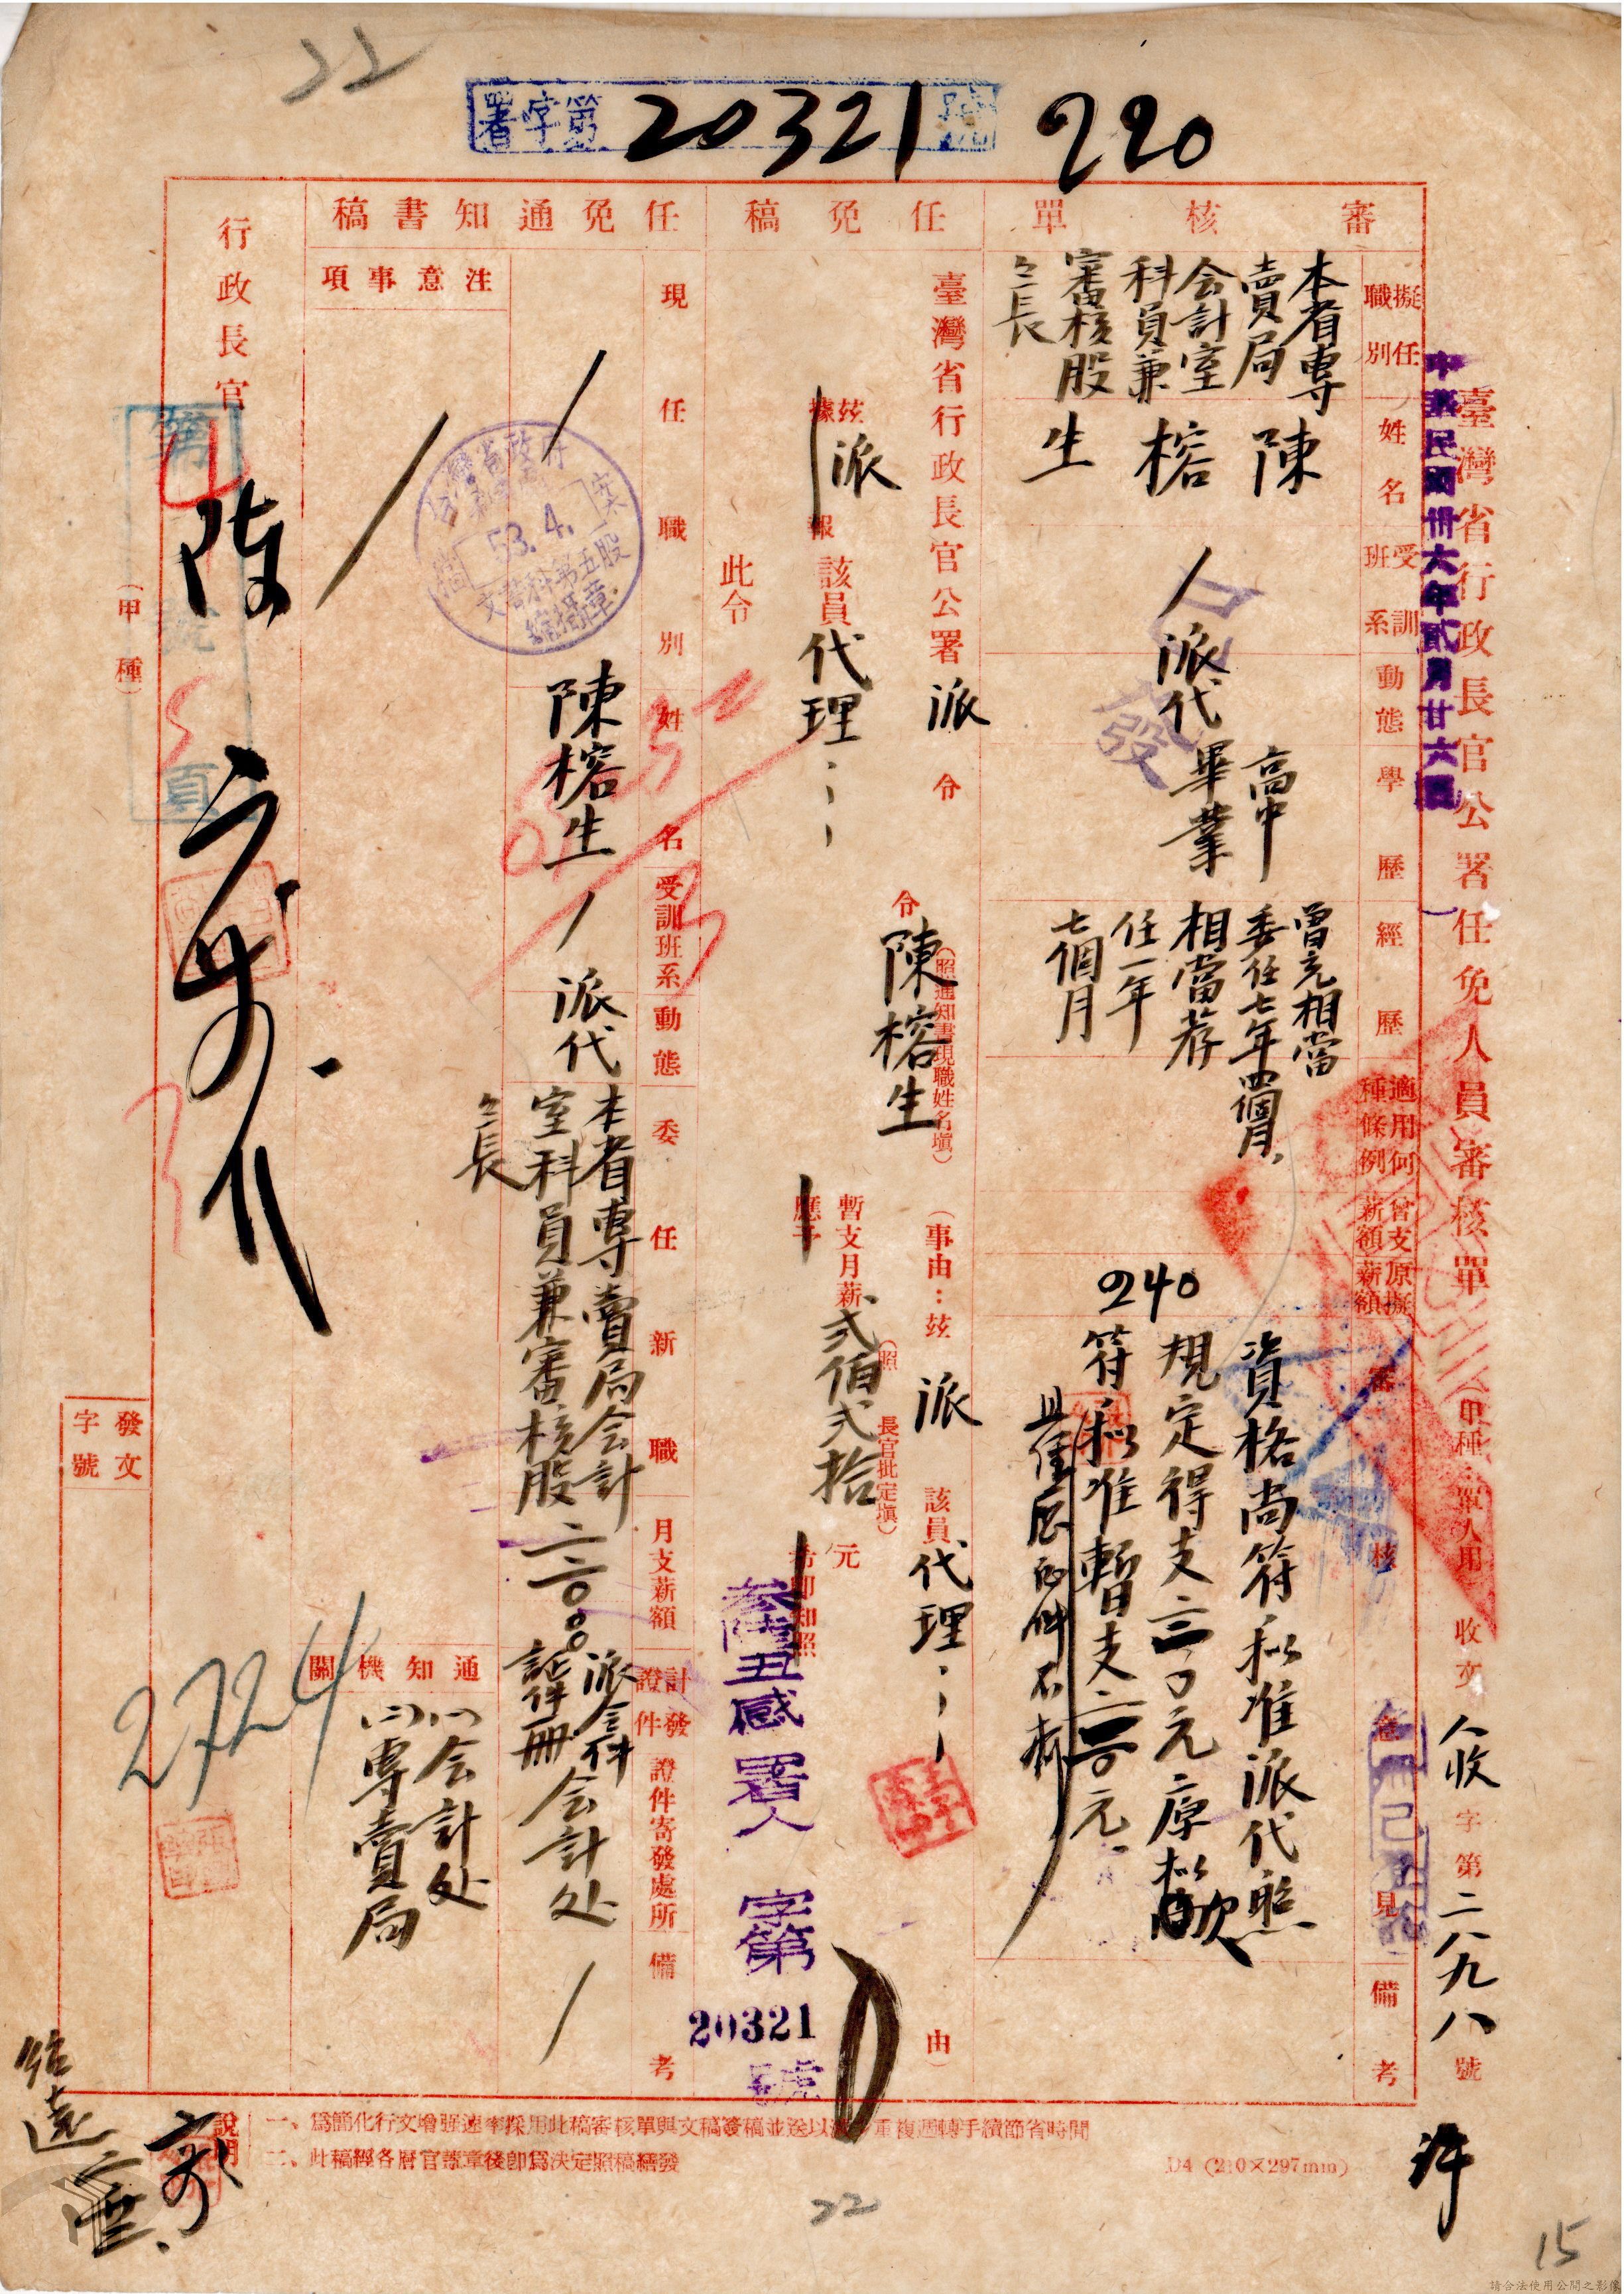 22
署字第20321號
220
中華民國卅六年貳月廿六日
臺灣省行政長官公署任免人員審核單
(甲種：單人用
收文人收字第二八九八號
審核單
擬任職別
本省專
賣局
会計室
科員兼
審核股
々長
姓名
陳
榕
生
受訓班系
動態
派代
學歷
高中
畢業
經歷
曾充相當
委任七年四個月,
相當荐
任一年
七個月
適用何種條例
曾支薪額
原擬薪額
240
審核意見
資格尚符和准派代照
規定得支二二〇元原擬
符和准暫支二二〇元
備考
任免稿
臺灣省行政長官公署派令
令陳榕生
(照通知書現職姓名填)
(事由：茲派該員代理⋯
由)
茲派該員代理⋯
據報
暫支月薪貳伯貳拾元
(照長官批定填)
應予
希即知照
此令
參陸丑感署人字第
20321
號
任免通知書稿
現任職別
姓名
陳榕生
受訓班系
動態
派代
委任新職
本省專賣局会計
室科員兼審核股
々長
月支薪額
二二〇.〇〇
計發證件
派令一件
証件一冊
證件寄發處所
会計处
備考
注意事項
通知機關
(一)会計处
(二)專賣局
53.4.
文書科第五股
行政長官
陳
(甲種)
發文
字號
2724
說明
一、爲簡化行文增强速率採用此稿審核單與文稿簽稿並送以減少重複週轉手續節省時間
二、此稿經各層官蓋章後卽爲決定照稿繕發
D4 (210×297mm)
22
15
請合法使用公開之影像